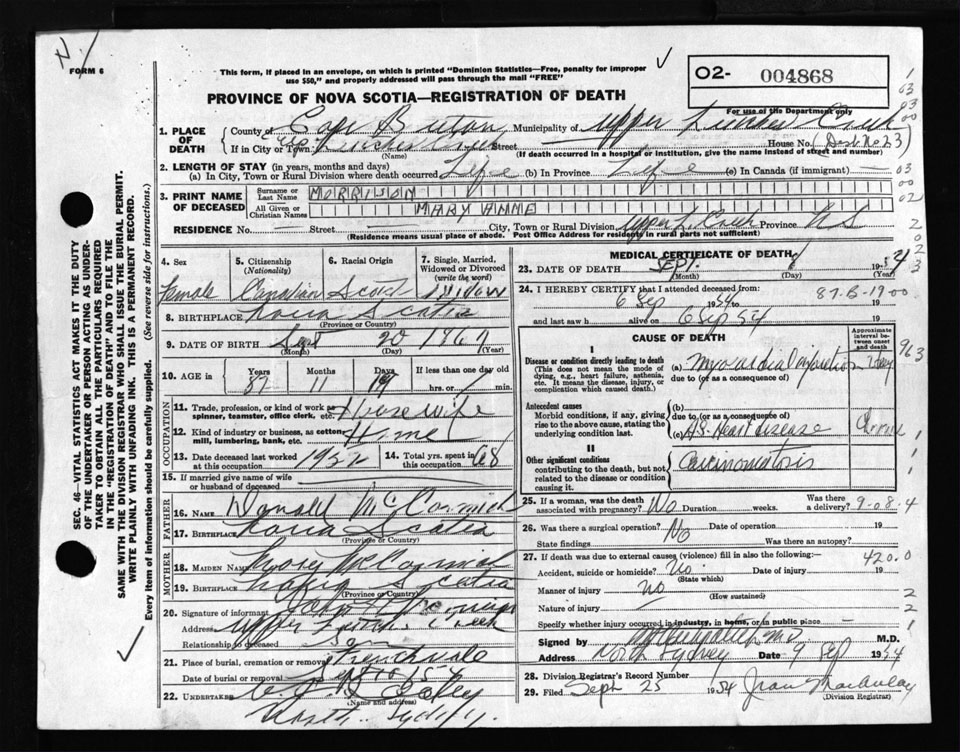 FORM 6
This form, if placed in an envelope, on which is printed "Dominion Statistics—Free, penalty for improper
use $50," and properly addressed will pass through the mail "FREE"
O2- 004868
For use of the Department only
PROVINCE OF NOVA SCOTIA—REGISTRATION OF DEATH
1. PLACE OF DEATH
County of Cape Breton Municipality of Upper Leitches Creek
If in City or Town Street House No. (Dist. No. 23)
(Name) (If death occurred in a hospital or institution, give the name instead of street and number)
2. LENGTH OF STAY (in years, months and days)
(a) In City, Town or Rural Division where death occurred Life (b) In Province Life (c) In Canada (if immigrant) —
3. PRINT NAME OF DECEASED
Surname or Last Name MORRISON
All Given or Christian Names MARY ANNE
RESIDENCE No. — Street — City, Town or Rural Division Upper L. Creek NS
(Residence means usual place of abode. Post Office Address for residents in rural parts not sufficient)
4. Sex
Female
5. Citizenship (Nationality)
Canadian
6. Racial Origin
Scotch
7. Single, Married, Widowed or Divorced (write the word)
Widow
8. BIRTHPLACE Nova Scotia
(Province or Country)
9. DATE OF BIRTH Sept 20 1867
(Month) (Day) (Year)
10. AGE Years Months Days If less than one day old
87 11 19 hrs. or min.
OCCUPATION
11. Trade, profession, or kind of work as spinner, teamster, office clerk, etc. Housewife
12. Kind of industry or business, as cotton mill, lumbering, bank, etc. Home
13. Date deceased last worked at this occupation 1952
14. Total yrs. spent in this occupation 68
15. If married give name of wife or husband of deceased
FATHER
16. Name Donald McCormick
17. Birthplace Nova Scotia
(Province or Country)
MOTHER
18. Maiden Name Mary McCormick
19. Birthplace Nova Scotia
(Province or Country)
20. Signature of informant John
Address Upper Leitches Creek
Relationship to deceased Son
21. Place of burial, cremation or removal Frenchvale
Date of burial or removal Sept 10 54
22. Undertaker
(Name and address)
North Sydney
MEDICAL CERTIFICATE OF DEATH
23. DATE OF DEATH SEPT. 8 1954
24. I HEREBY CERTIFY that I attended deceased from:
6 Sep 1954 to 19
and last saw h alive on 6 Sep 54 19
CAUSE OF DEATH
Approximate interval between onset and death
I
Disease or condition directly leading to death
(This does not mean the mode of dying, e.g., heart failure, asthenia, etc. It means the disease, injury, or complication which caused death.)
(a) Myocardial Infarction
due to (or as a consequence of)
Antecedent causes
Morbid conditions, if any, giving rise to the above cause, stating the underlying condition last.
(b)
due to (or as a consequence of)
(c) A.S. Heart disease
II
Other significant conditions
contributing to the death, but not related to the disease or condition causing it.
Carcinomatosis
25. If a woman, was the death associated with pregnancy? No Duration weeks. Was there a delivery?
26. Was there a surgical operation? No Date of operation 19
State findings Was there an autopsy?
27. If death was due to external causes (violence) fill in also the following:—
Accident, suicide or homicide? No Date of injury 19
(State which)
Manner of injury No
(How sustained)
Nature of injury
Specify whether injury occurred in industry, in home, or in public place
Signed by M.D.
Address North Sydney Date 9 Sep 1954
28. Division Registrar's Record Number
29. Filed Sept 25 1954 Jean MacAulay
(Division Registrar)
SEC. 46—VITAL STATISTICS ACT MAKES IT THE DUTY
OF THE UNDERTAKER OR PERSON ACTING AS UNDER-
TAKER TO OBTAIN ALL THE PARTICULARS REQUIRED
IN THE "REGISTRATION OF DEATH" AND TO FILE THE
SAME WITH THE DIVISION REGISTRAR WHO SHALL ISSUE THE BURIAL PERMIT.
WRITE PLAINLY WITH UNFADING INK. THIS IS A PERMANENT RECORD.
Every item of information should be carefully supplied. (See reverse side for instructions.)